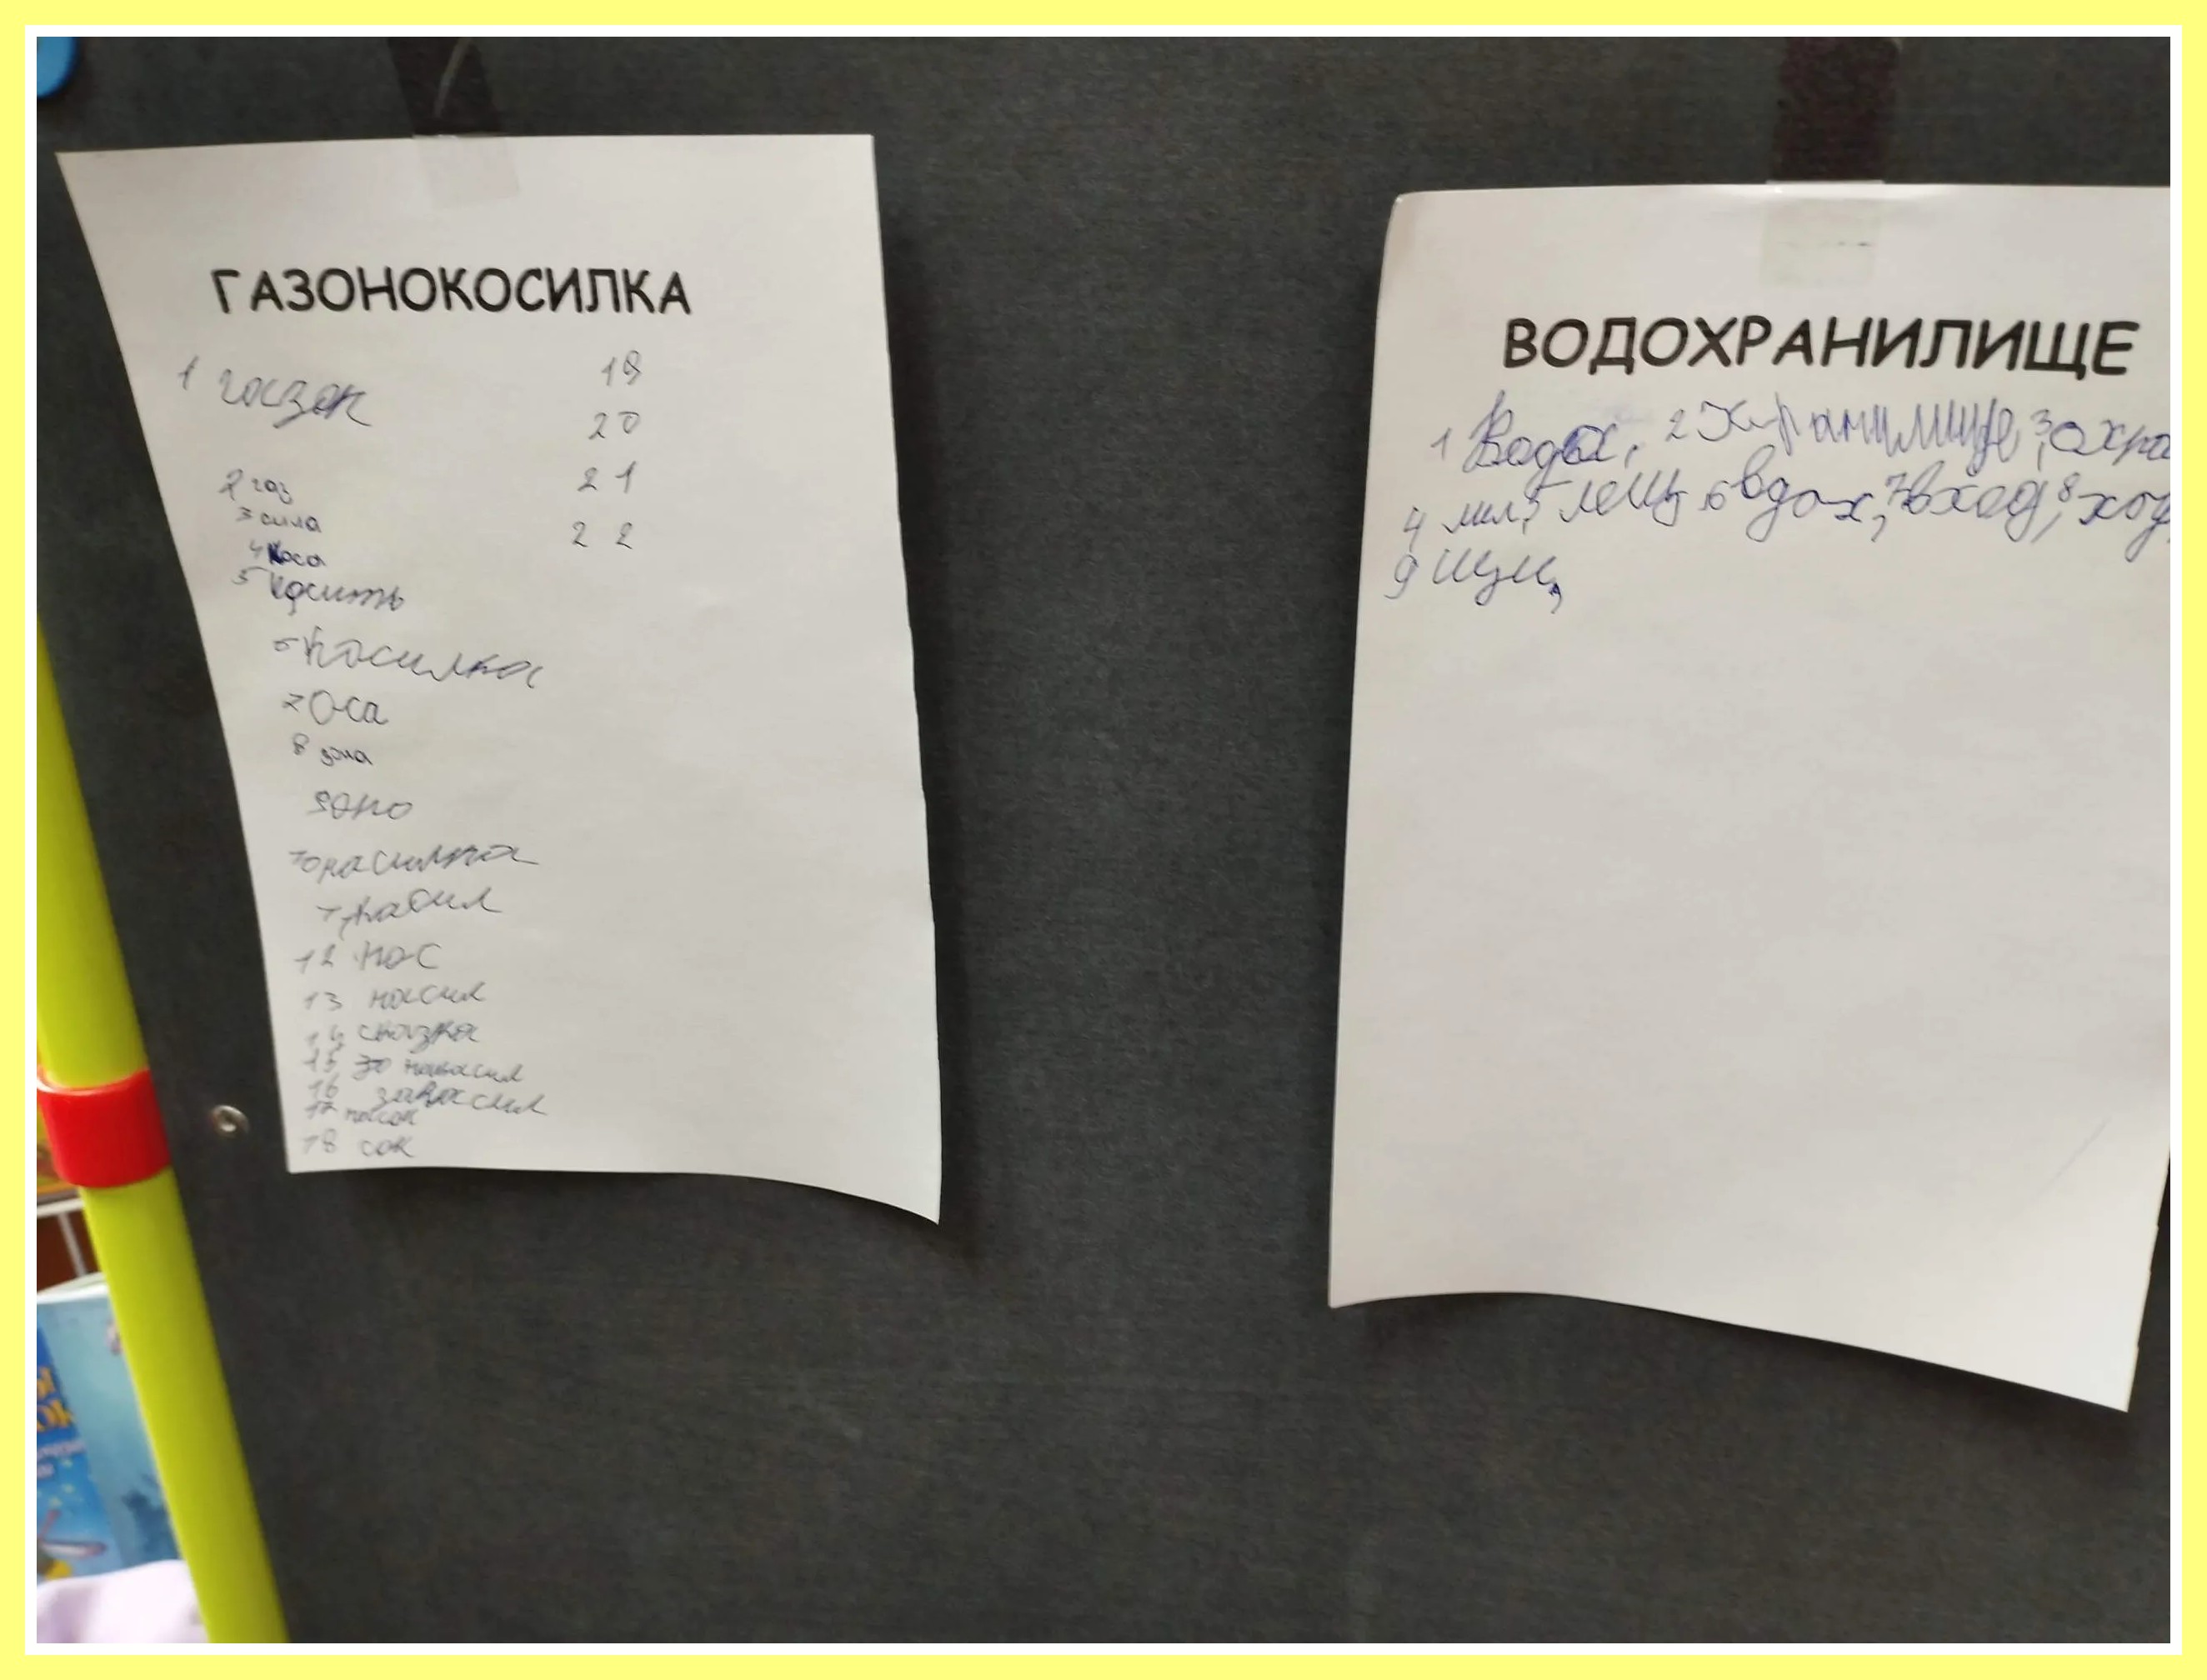 ГАЗОНОКОСИЛКА
1 газон
2 газ
3 сила
4 Коса
5 косить
6 Косилка
7 Оса
8 зола
9 оно
10 насилка
12 нос
13 носил
14 сказка
15 накосил
16 закосил
17 носок
18 сок
19
20
21
22
ВОДОХРАНИЛИЩЕ
1 Вода, 2 Хранилище, 3 охра
4 мл, 5 лещ, 6 вдох, 7 вход, 8 ход,
9 щи,